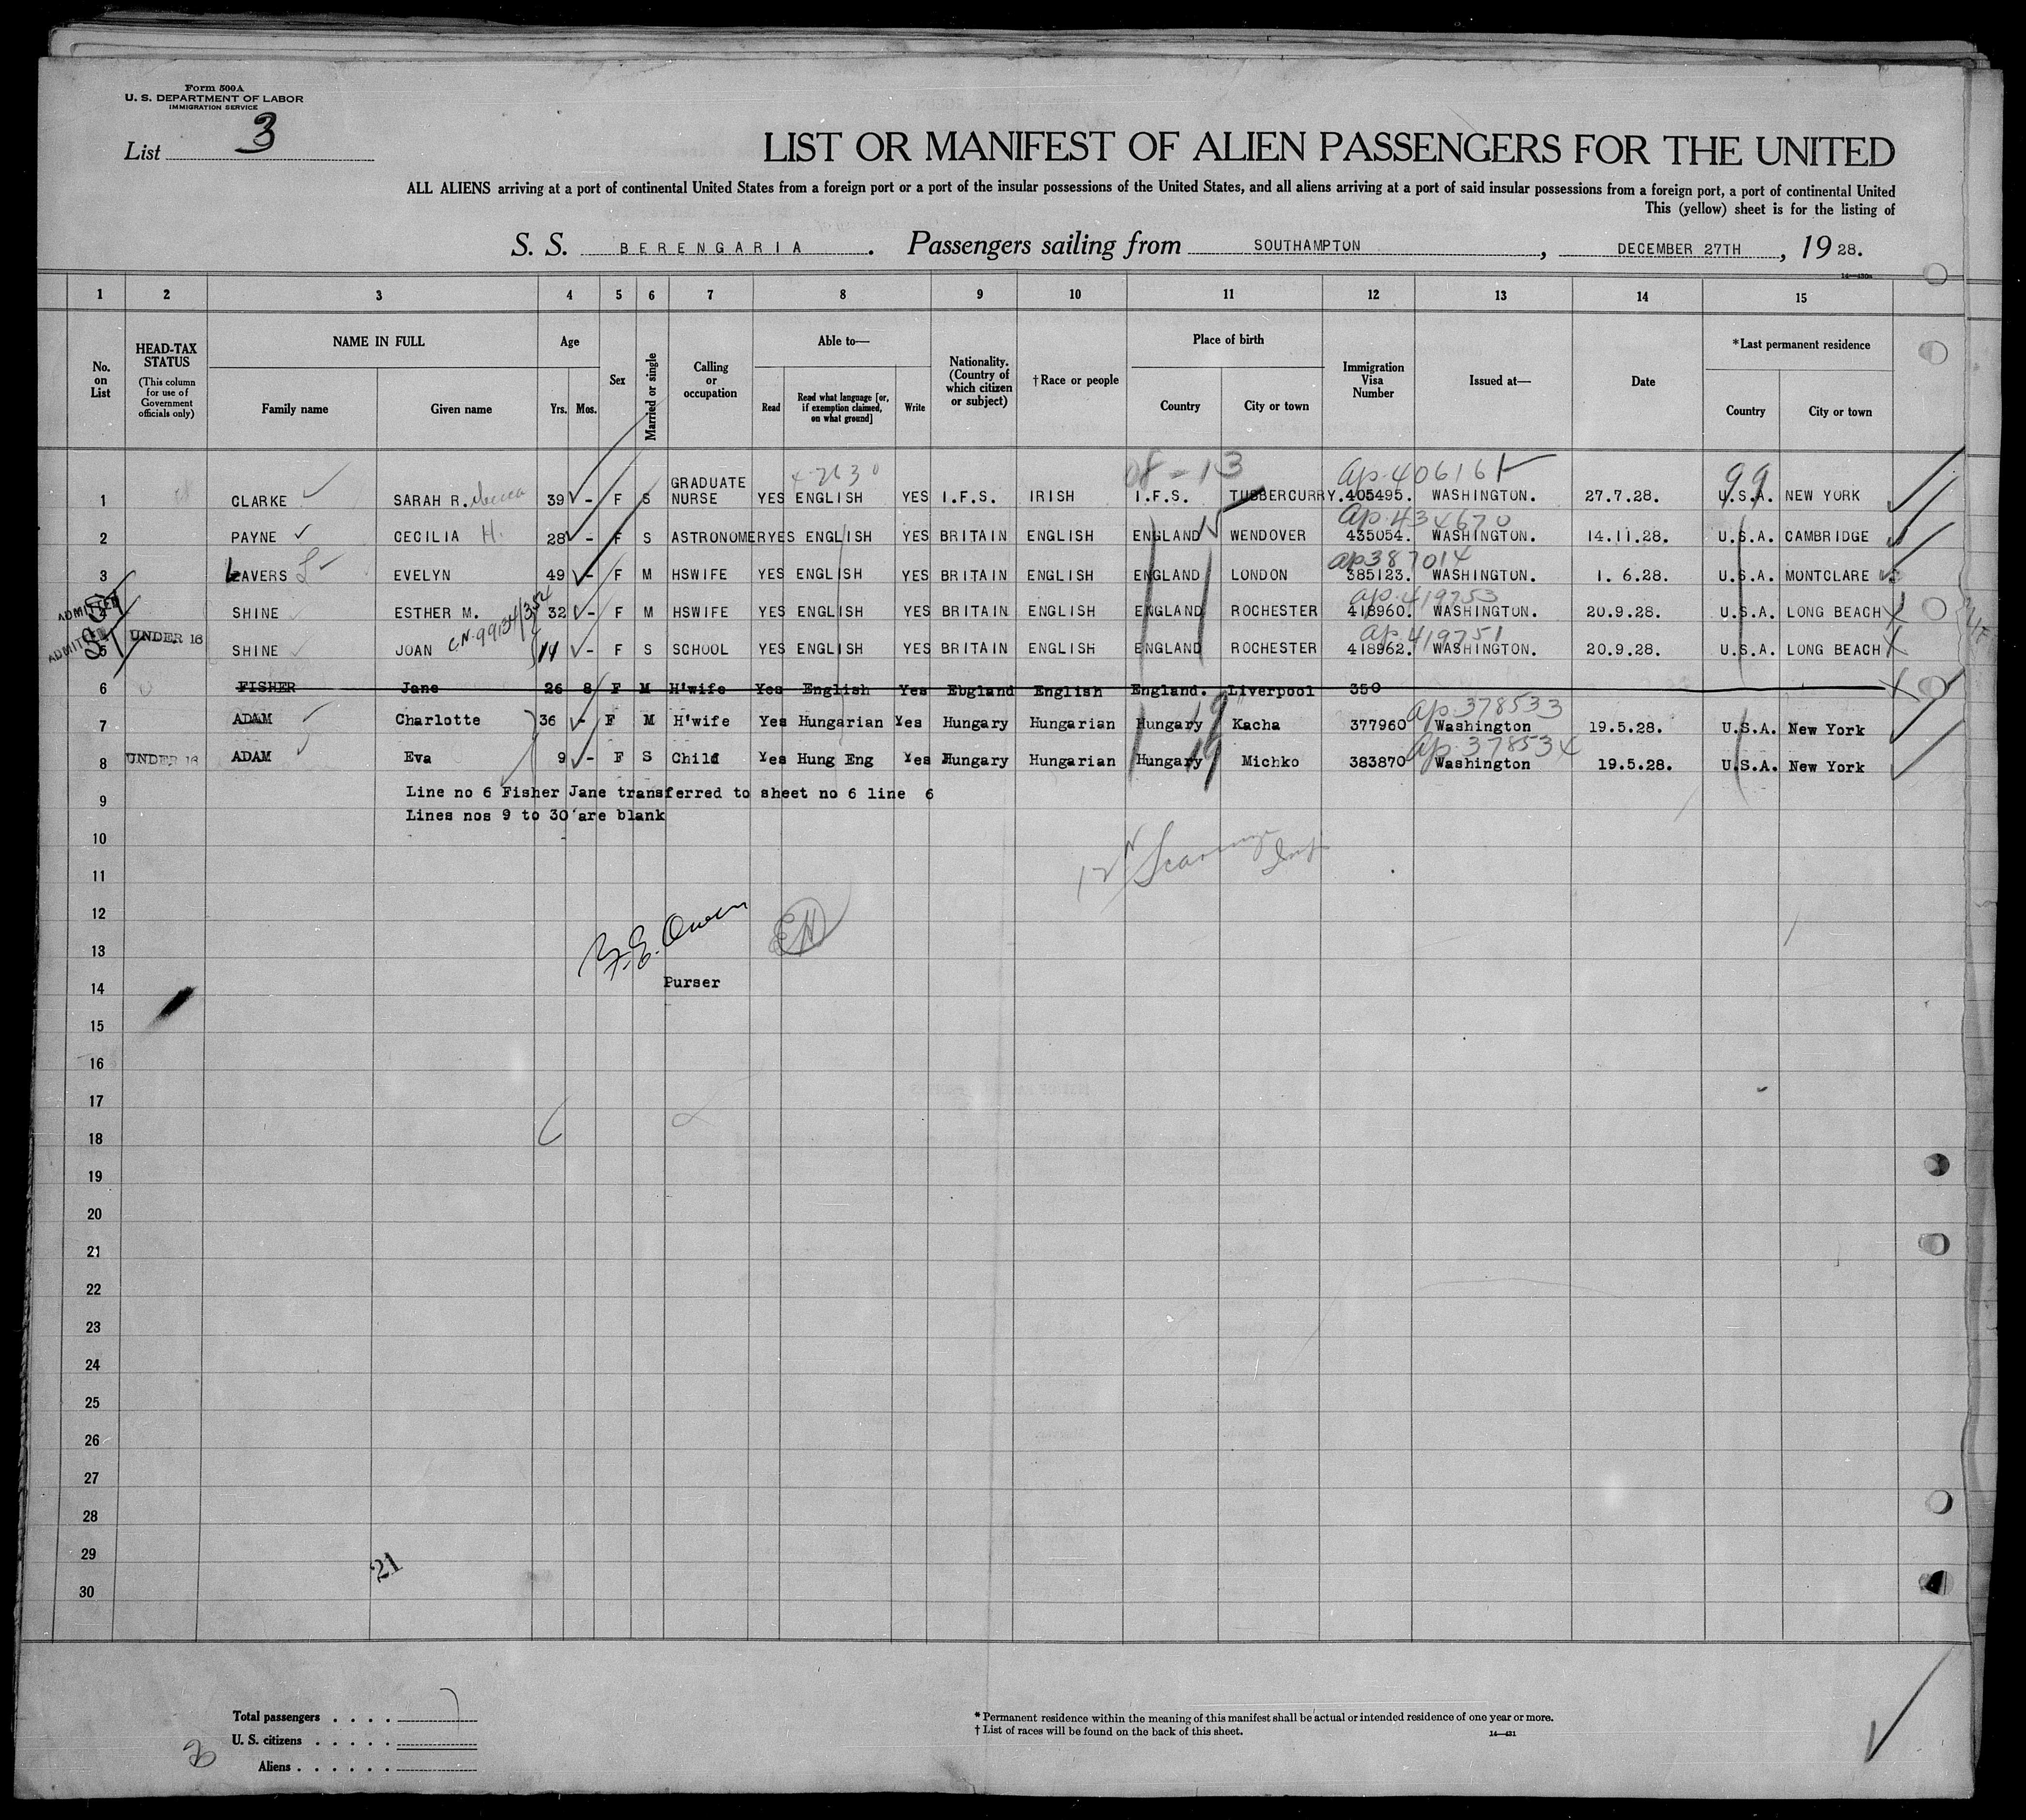 Form 500A
U. S. DEPARTMENT OF LABOR
IMMIGRATION SERVICE
List 3
LIST OR MANIFEST OF ALIEN PASSENGERS FOR THE UNITED
ALL ALIENS arriving at a port of continental United States from a foreign port or a port of the insular possessions of the United States, and all aliens arriving at a port of said insular possessions from a foreign port, a port of continental United
This (yellow) sheet is for the listing of
S. S. BERENGARIA. Passengers sailing from SOUTHAMPTON, DECEMBER 27TH, 1928.
1 2 3 4 5 6 7 8 9 10 11 12 13 14 15
No. on List
HEAD-TAX STATUS
(This column for use of Government officials only)
NAME IN FULL
Family name Given name
Age
Yrs. Mos.
Sex
Married or single
Calling or occupation
Able to—
Read
Read what language [or, if exemption claimed, on what ground]
Write
Nationality. (Country of which citizen or subject)
†Race or people
Place of birth
Country City or town
Immigration Visa Number
Issued at—
Date
*Last permanent residence
Country City or town
08-13 ap.406161 99
1 CLARKE SARAH R.ebecca 39 - F S GRADUATE NURSE YES ENGLISH YES I.F.S. IRISH I.F.S. TUBBERCURRY. 405495. WASHINGTON. 27.7.28. U.S.A. NEW YORK
ap.434670
2 PAYNE CECILIA H. 28 - F S ASTRONOMER YES ENGLISH YES BRITAIN ENGLISH ENGLAND WENDOVER 435054. WASHINGTON. 14.11.28. U.S.A. CAMBRIDGE
ap387014
3 LAVERS EVELYN 49 - F M HSWIFE YES ENGLISH YES BRITAIN ENGLISH ENGLAND LONDON 385123. WASHINGTON. 1. 6.28. U.S.A. MONTCLARE
ap.419753
ADMITTED
4 SHINE ESTHER M. 32 - F M HSWIFE YES ENGLISH YES BRITAIN ENGLISH ENGLAND ROCHESTER 418960. WASHINGTON. 20.9.28. U.S.A. LONG BEACH
ap.419751
ADMITTED
5 UNDER 16 SHINE JOAN 14 - F S SCHOOL YES ENGLISH YES BRITAIN ENGLISH ENGLAND ROCHESTER 418962. WASHINGTON. 20.9.28. U.S.A. LONG BEACH
6 FISHER Jane 26 8 F M H'wife Yes English Yes Ebgland English England. Liverpool 350
ap.378533
7 ADAM Charlotte 36 - F M H'wife Yes Hungarian Yes Hungary Hungarian Hungary Kacha 377960 Washington 19.5.28. U.S.A. New York
ap.378534
8 UNDER 16 ADAM Eva 9 - F S Child Yes Hung Eng Yes Hungary Hungarian Hungary Michko 383870 Washington 19.5.28. U.S.A. New York
9 Line no 6 Fisher Jane transferred to sheet no 6 line 6
Lines nos 9 to 30 are blank
10
11
12
EH
13
Owen
14 Purser
15
16
17
18
19
20
21
22
23
24
25
26
27
28
29
21
30
Total passengers
U. S. citizens
Aliens
* Permanent residence within the meaning of this manifest shall be actual or intended residence of one year or more.
† List of races will be found on the back of this sheet.
14—431